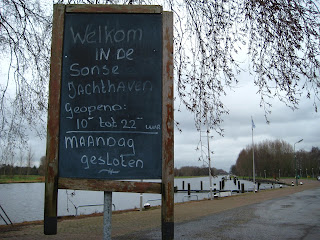 Welkom
IN DE
Sonse
Jachthaven
Geopend:
10- tot 22- uur
MAANDAG
gesloten